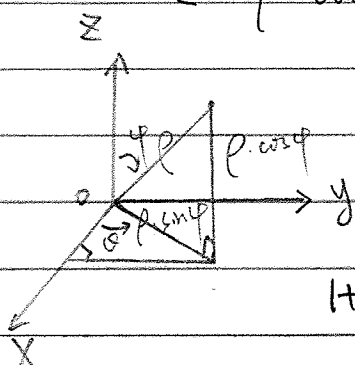 Z
φ ρ ρ·cosφ
o y
θ ρ·sinφ
X